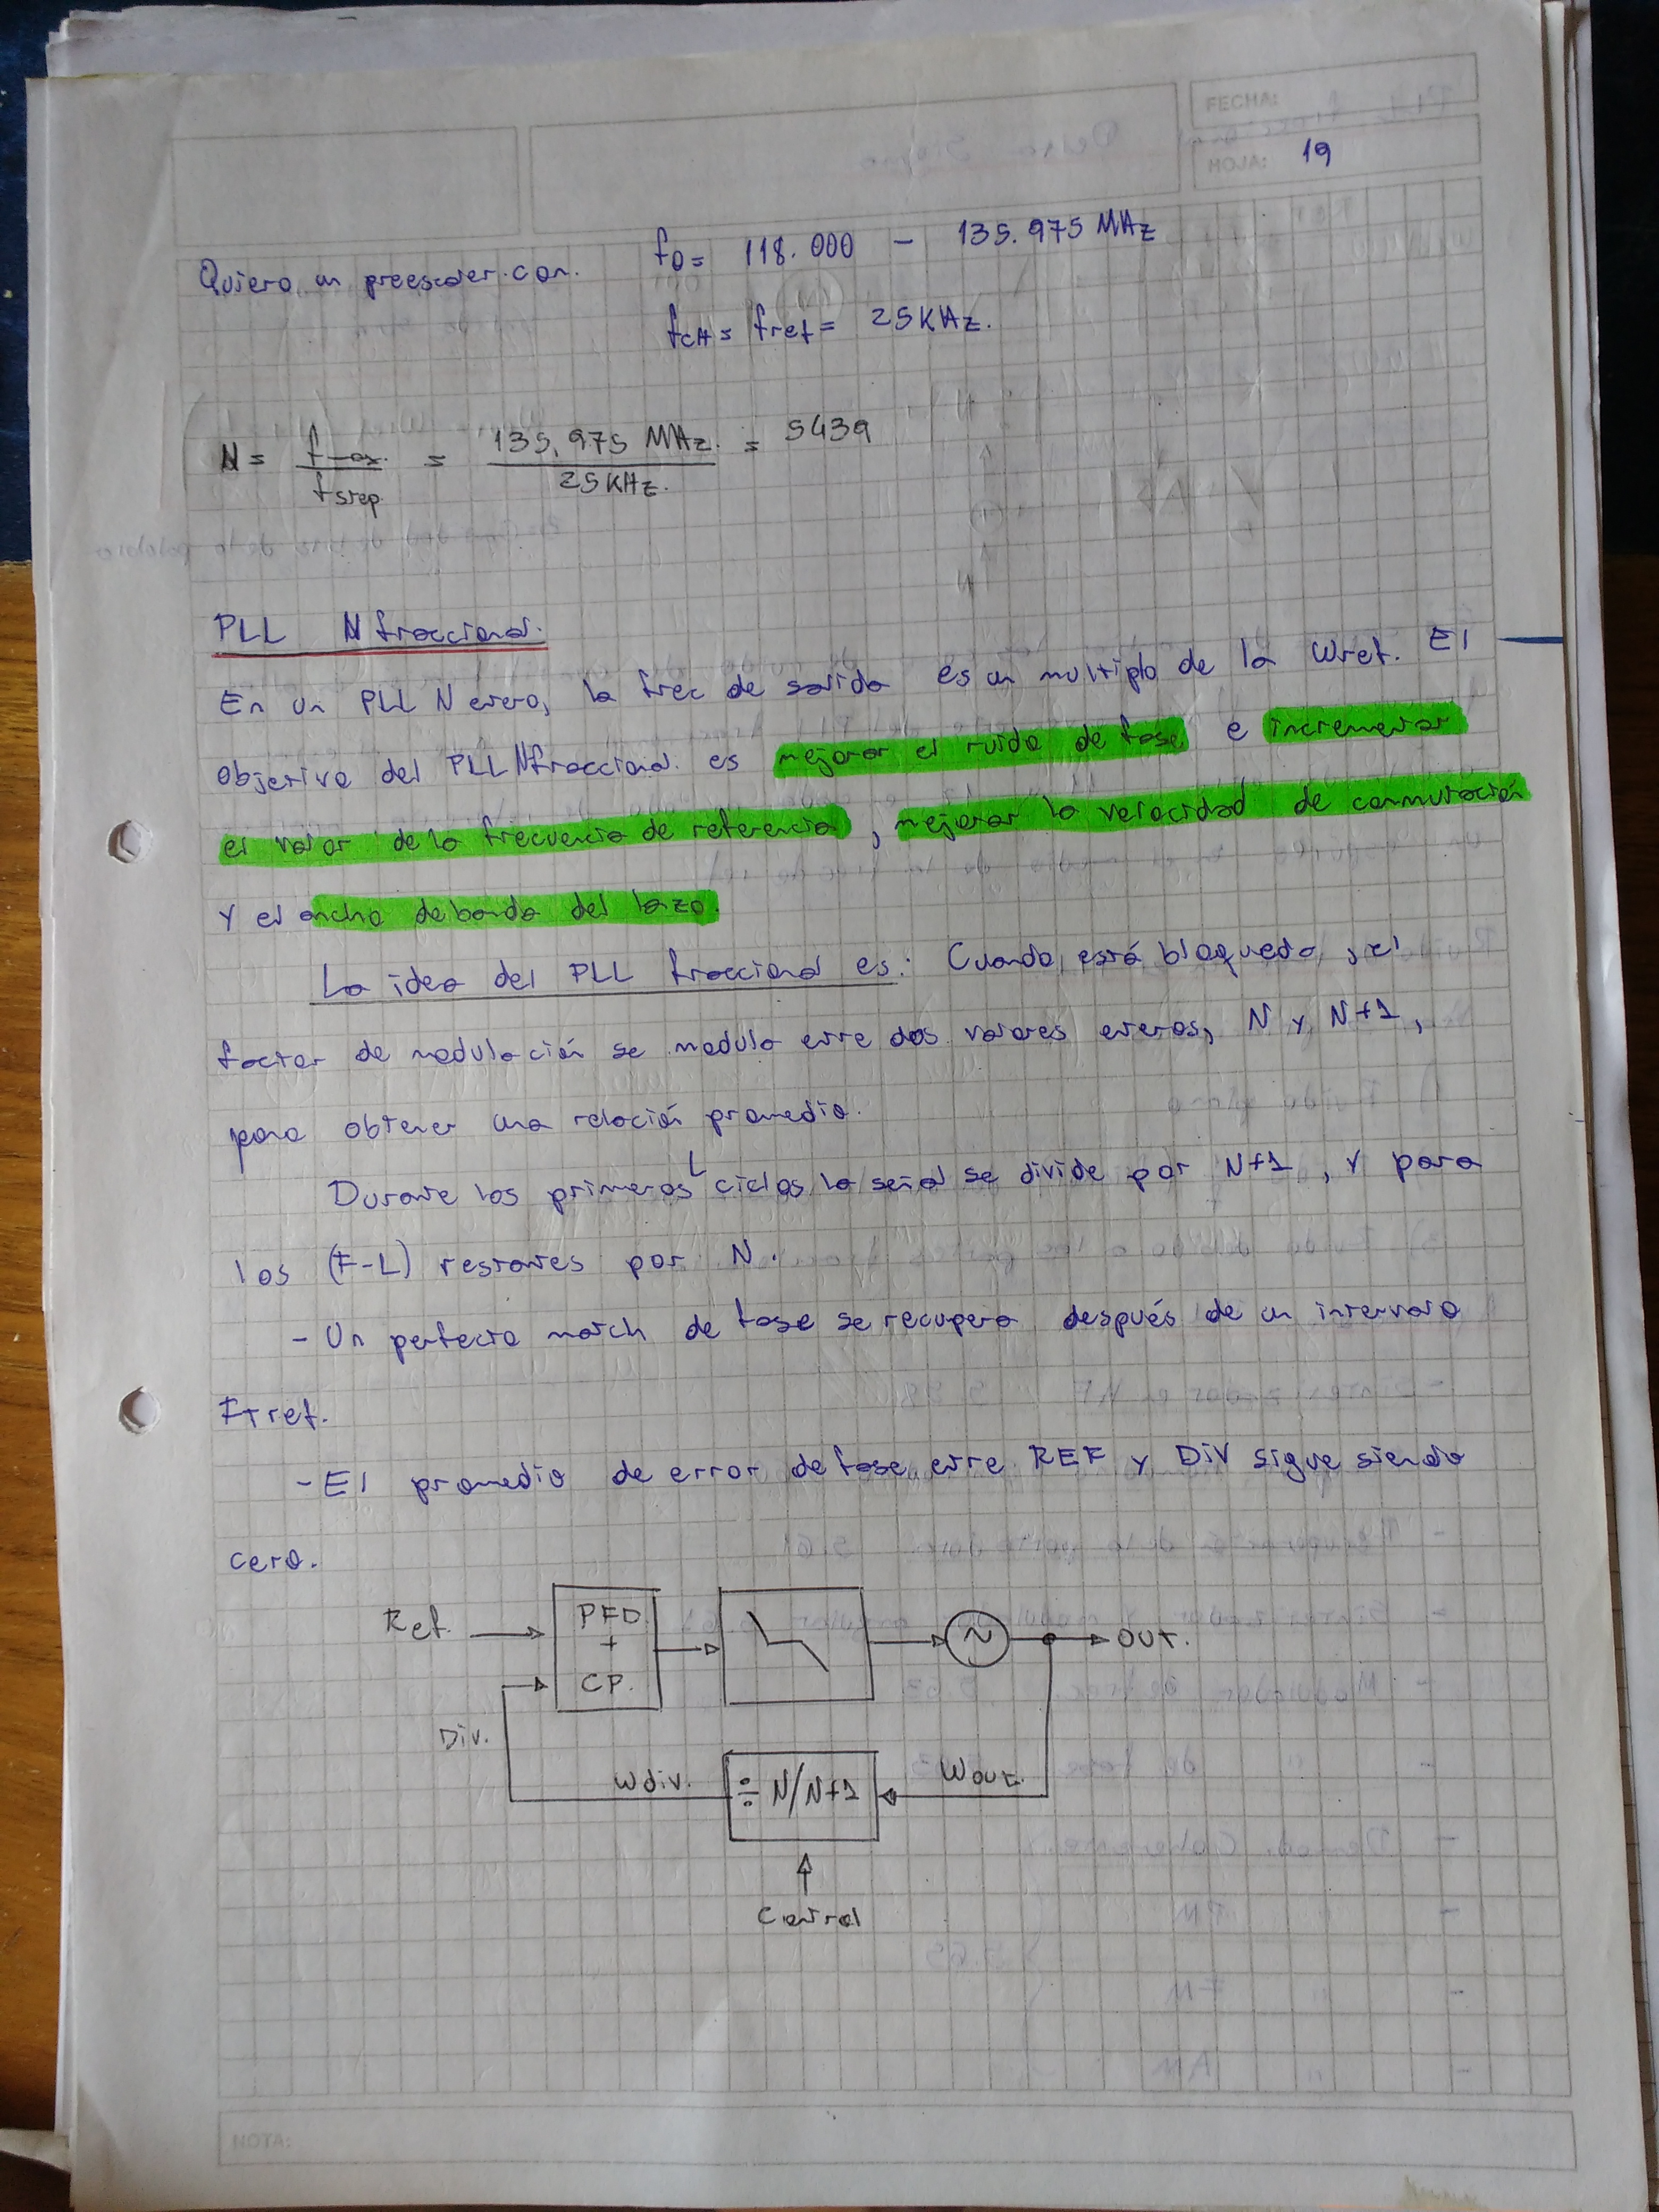 FECHA:
HOJA: 19
Quiero un preescaler con. fo= 118.000 - 135.975 MHz
fcH= fref= 25KHz.
N= fmax. / fstep = 135.975 MHz. / 25KHz. = 5439
PLL N fraccional.
En un PLL N entero, la frec de salida es un multiplo de la Wref. El
objetivo del PLL Nfraccional es mejorar el ruido de fase e incrementar
el valor de la frecuencia de referencia, mejorar la velocidad de conmutación
y el ancho de banda del lazo.
La idea del PLL fraccional es: Cuando está bloquedo, el
factor de modulación se modula entre dos valores enteros, N y N+1,
para obtener una relación promedio.
Durante los primeros L ciclos la señal se divide por N+1, y para
los (F-L) restantes por N.
- Un perfecto match de fase se recupera después de un intervalo
FTref.
- El promedio de error de fase entre REF y DIV sigue siendo
cero.
Ref. PFD + CP. ~ OUT.
Div. Wdiv. ÷ N/N+1 Wout.
Control
NOTA: